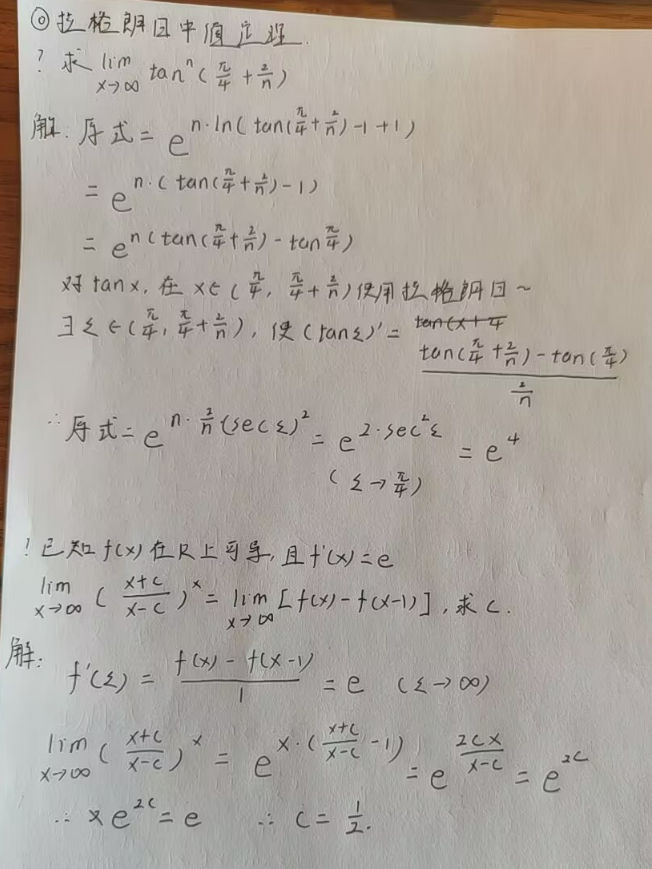 ◎拉格朗日中值定理.
? 求 lim x→∞ tanⁿ(π/4 + 2/n)
解: 原式 = e^{n·ln(tan(π/4+2/n)-1+1)}
= e^{n·(tan(π/4+2/n)-1)}
= e^{n(tan(π/4+2/n)-tan π/4)}
对 tanx, 在 x∈(π/4, π/4+2/n)使用拉格朗日~
∃ξ∈(π/4, π/4+2/n), 使(tanξ)' = (tan(π/4+2/n)-tan(π/4))/(2/n)
∴ 原式 = e^{n·2/n(secξ)²} = e^{2·sec²ξ} = e⁴
(ξ→π/4)
! 已知f(x)在R上可导, 且f'(x)=e
lim x→∞ ((x+c)/(x-c))^x = lim x→∞ [f(x)-f(x-1)], 求c.
解:
f'(ξ) = (f(x)-f(x-1))/1 = e (ξ→∞)
lim x→∞ ((x+c)/(x-c))^x = e^{x·((x+c)/(x-c)-1)} = e^{2cx/(x-c)} = e^{2c}
∴ e^{2c} = e ∴ c = 1/2.